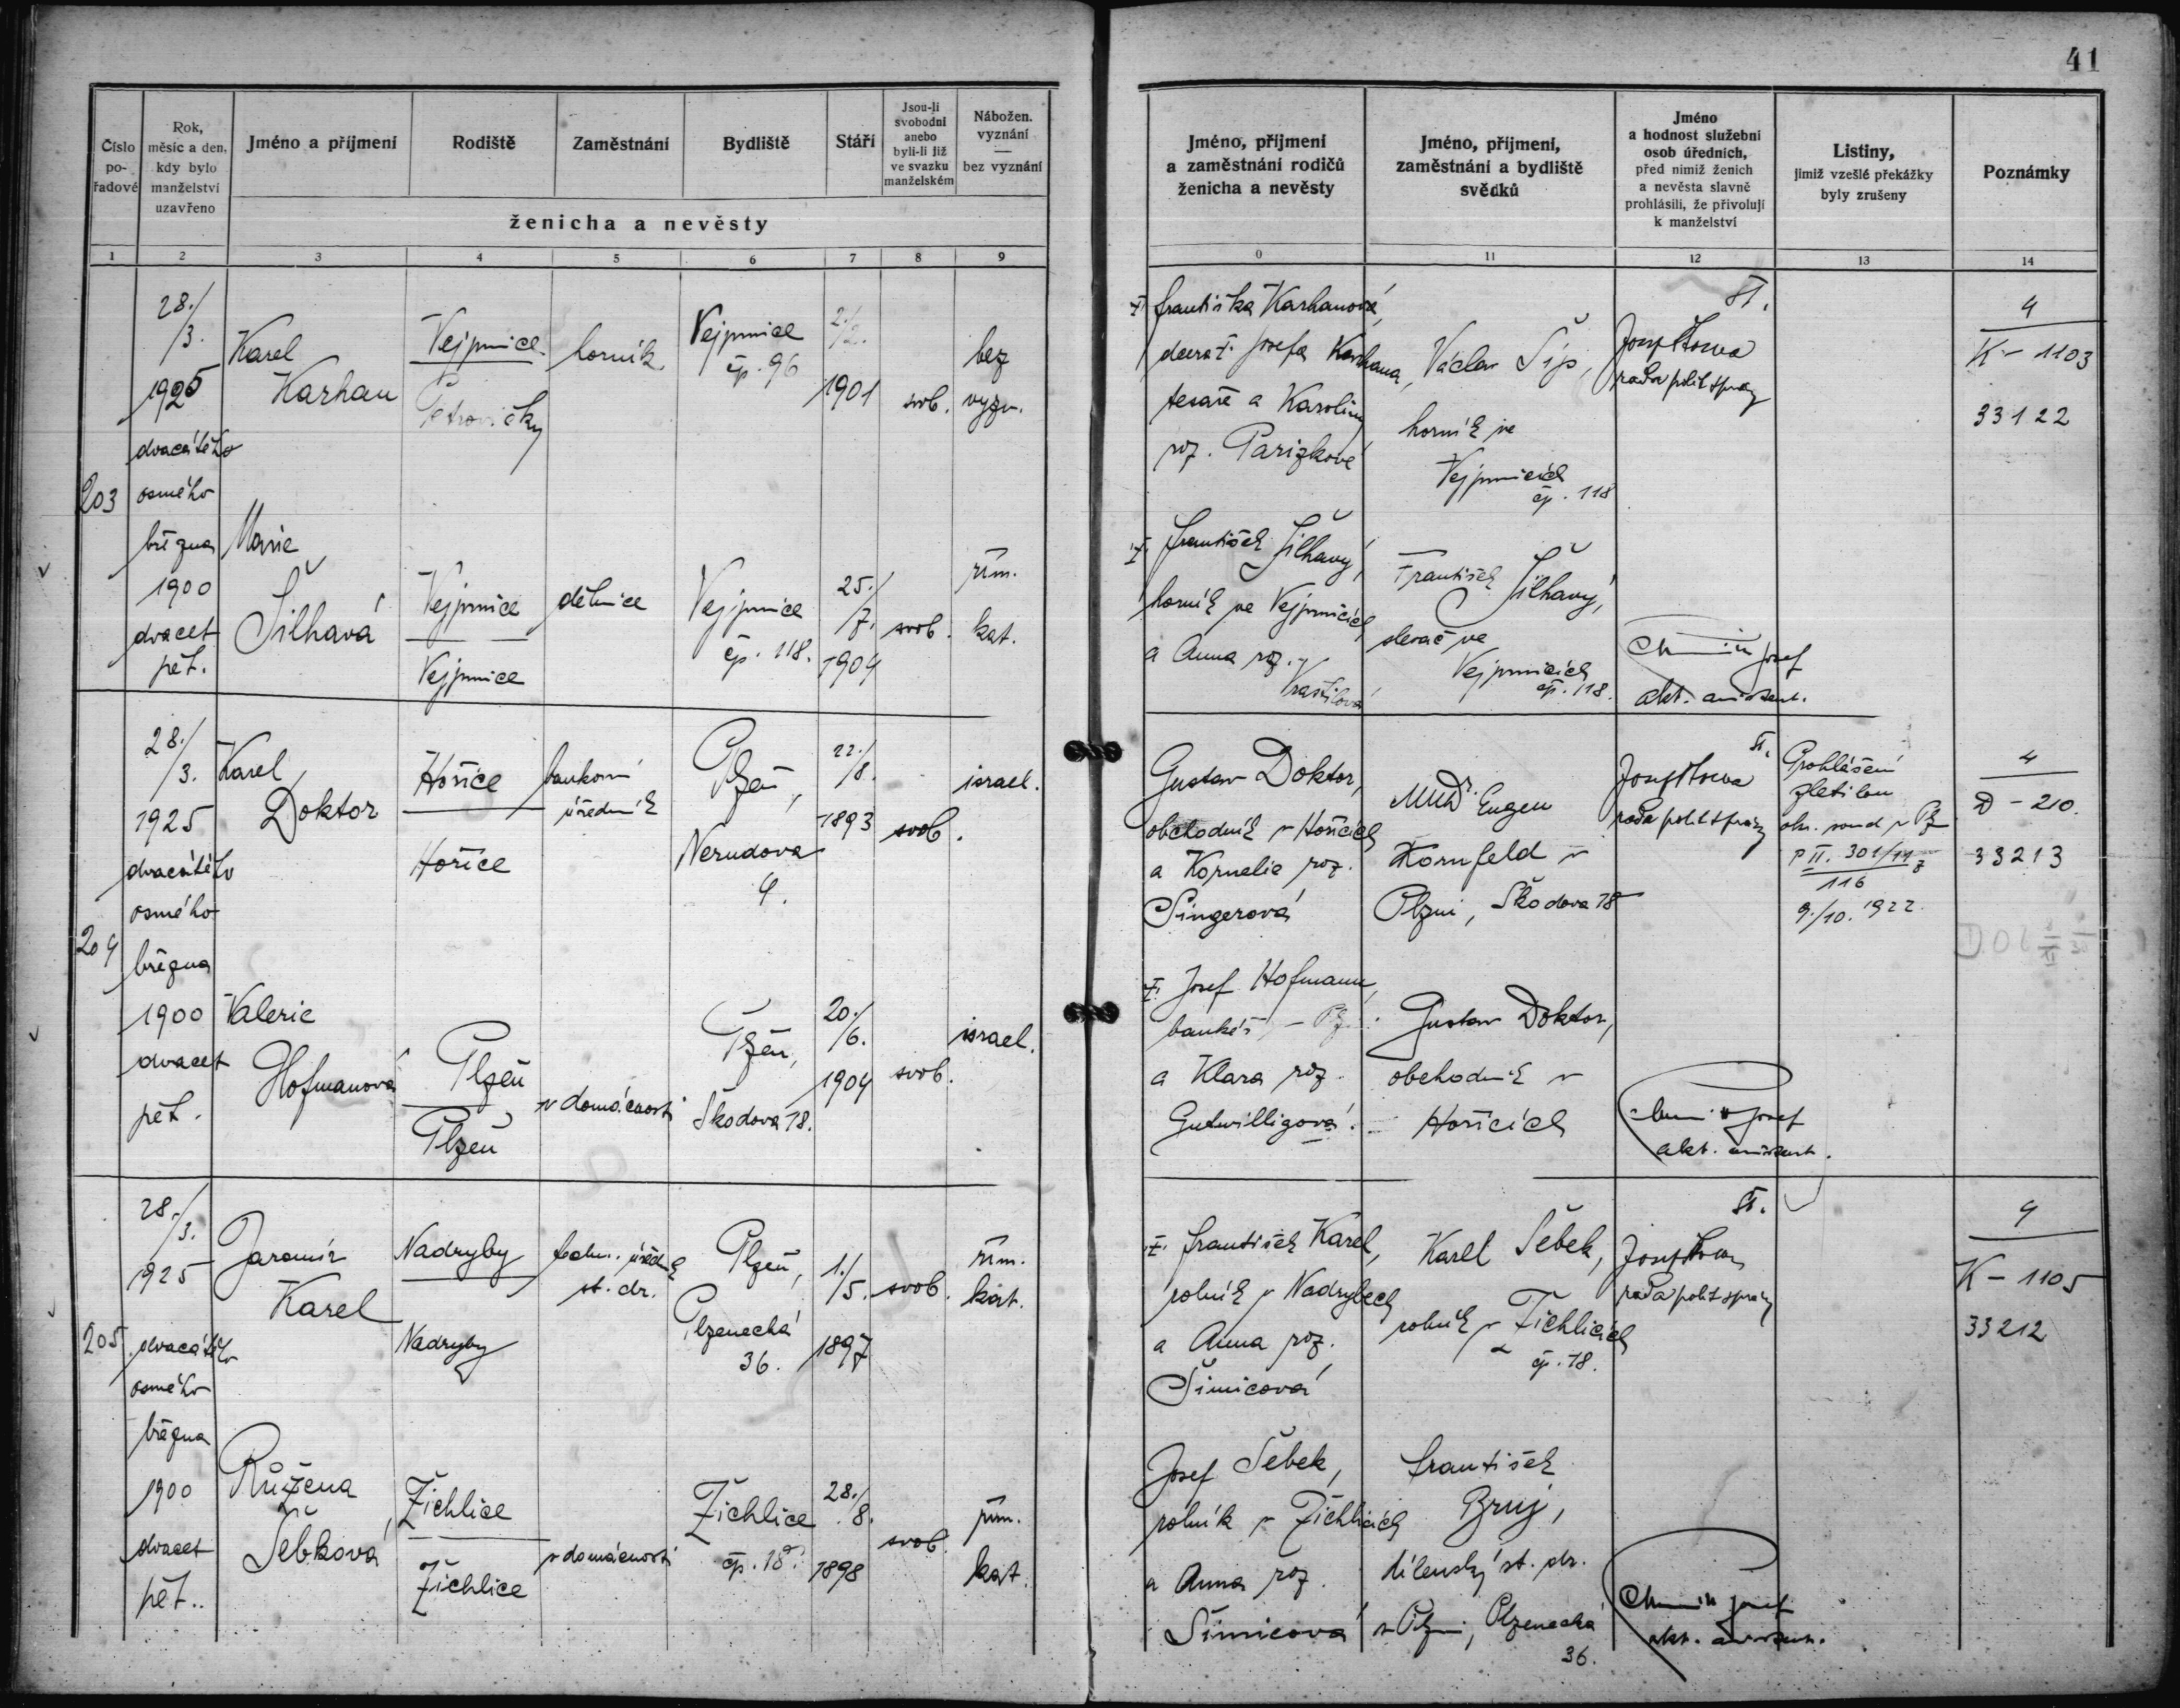 41
Číslo
po-
řadové
Rok,
měsíc a den,
kdy bylo
manželství
uzavřeno
Jméno a příjmení
Rodiště
Zaměstnání
Bydliště
Stáří
Jsou-li
svobodni
anebo
byli-li již
ve svazku
manželském
Nábožen.
vyznání
—
bez vyznání
ženicha a nevěsty
Jméno, příjmení
a zaměstnání rodičů
ženicha a nevěsty
Jméno, příjmení,
zaměstnání a bydliště
svědků
Jméno
a hodnost služební
osob úředních,
před nimiž ženich
a nevěsta slavně
prohlásili, že přivolují
k manželství
Listiny,
jimiž vzešlé překážky
byly zrušeny
Poznámky
1 2 3 4 5 6 7 8 9
0 11 12 13 14
203
28./
/3.
1925
dvacátého
osmého
března
1900
dvacet
pět.
Karel
Karhan
Vejprnice
Petrovičky
horník
Vejprnice
čp. 96
2./
/2.
1901
svob.
bez
vyzn.
Marie
Šilhavá
Vejprnice
Vejprnice
dělnice
Vejprnice
čp. 118.
25./
/7.
1904
svob.
řím.
kat.
Františka Karhanová,
dcera Josefa Karhana,
tesaře a Karoliny
roz. Parizkové
František Šilhavý,
horník ve Vejprnicích
a Anna roz.
Vraštilová
Václav Šíp,
horník ve
Vejprnicích
čp. 118
František Šilhavý,
slevač ve
Vejprnicích
čp. 118.
Josef
rada polit správy
Josef
akt.
4
K - 1103
33122
204
28./
/3.
1925
dvacátého
osmého
března
1900
dvacet
pět.
Karel
Doktor
Hořice
Hořice
bankovní
úředník
Plzeň,
Nerudova
4.
22./
/8.
1893
svob.
israel.
Valerie
Hofmanová
Plzeň
Plzeň
v domácnosti
Plzeň,
Škodova 18.
20./
/6.
1904
svob.
israel.
Gustav Doktor,
obchodník v Hořicích
a Kornelie roz.
Singerová
Josef Hofmann,
bankéř
a Klara roz.
Gutwilligová.
MUDr. Eugen
Kornfeld v
Plzni, Škodova 18
Gustav Doktor,
obchodník v
Hořicích
Josef
rada polit správy
Josef
akt.
Prohlášení
zletilou
okr. soud v Plz
P II. 301/11
116
9./10. 1922
4
D - 210.
33213
205.
28./
/3.
1925
dvacátého
osmého
března
1900
dvacet
pět..
Jaromír
Karel
Nadryby
Nadryby
st. dr.
Plzeň,
Plzenecká
36.
1./
/5.
1897
svob.
řím.
kat.
Růžena
Šebková
Žichlice
Žichlice
v domácnosti
Žichlice
čp. 18.
28./
8.
1898
svob.
řím.
kat.
František Karel,
rolník v Nadrybech
a Anna roz.
Šimicová
Josef Šebek,
rolník v Žichlicích
a Anna roz.
Šimicová
Karel Šebek,
rolník v Žichlicích
čp. 18.
František
Bruj,
dílenský st. dr.
v Plzni, Plzenecká
36.
Josef
rada polit správy
Josef
akt.
4
K - 1105
33212